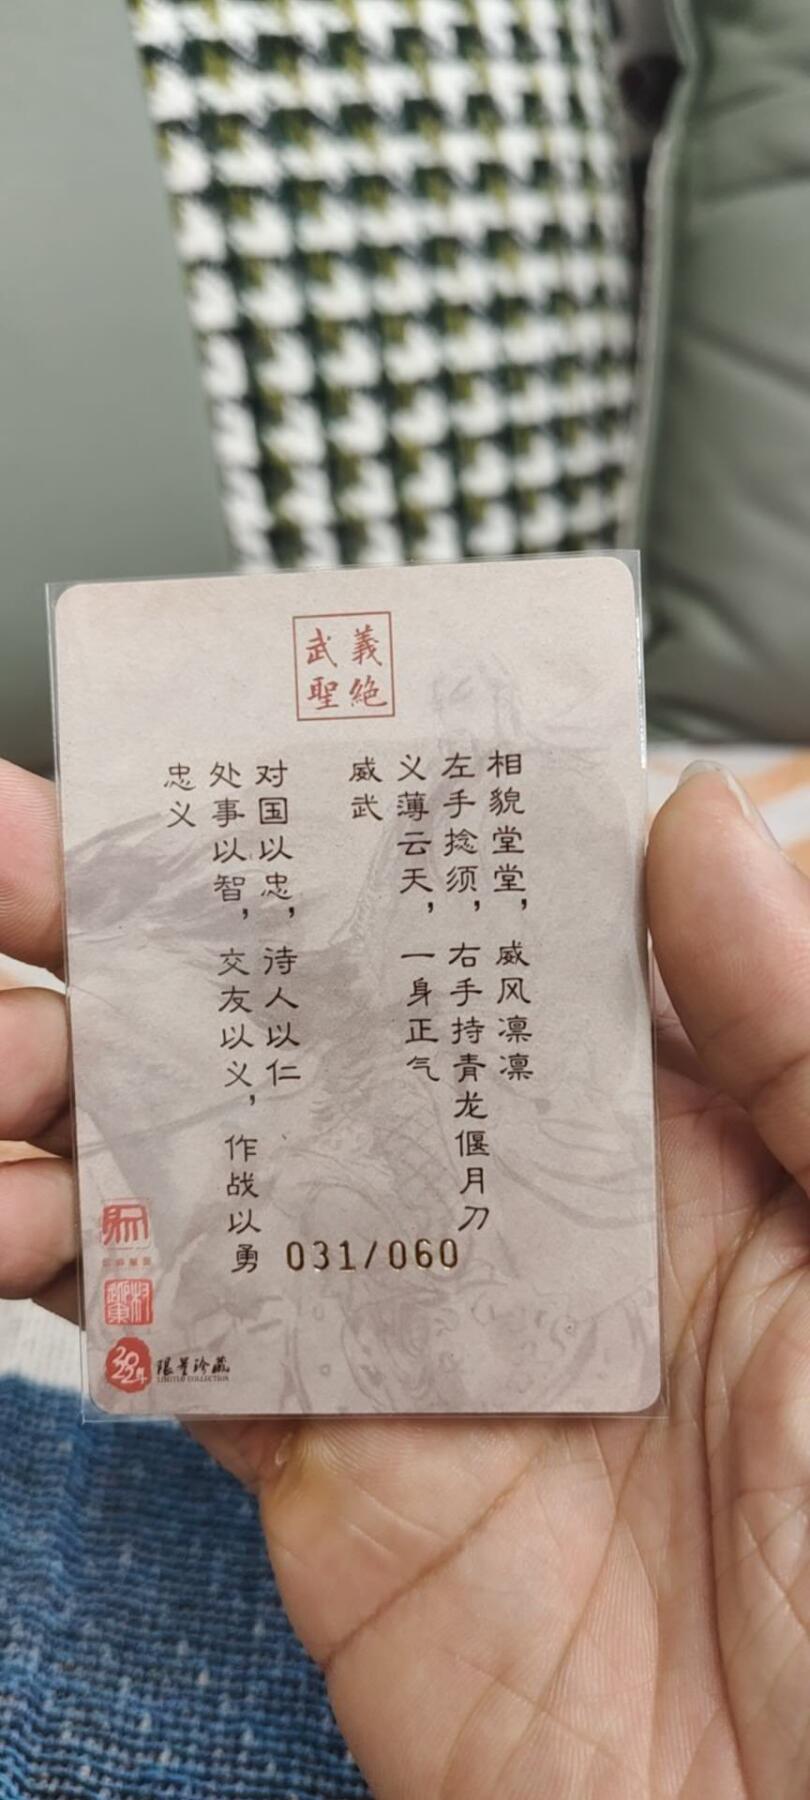 義絶
武聖
相貌堂堂，威风凛凛
左手捻须，右手持青龙偃月刀
义薄云天，一身正气
威武
对国以忠，待人以仁
处事以智，交友以义，作战以勇
忠义
031/060
2022年
限量珍藏
LIMITED COLLECTION